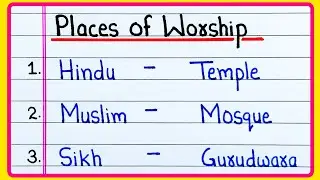 Places of Worship
1. Hindu - Temple
2. Muslim - Mosque
3. Sikh - Gurudwara